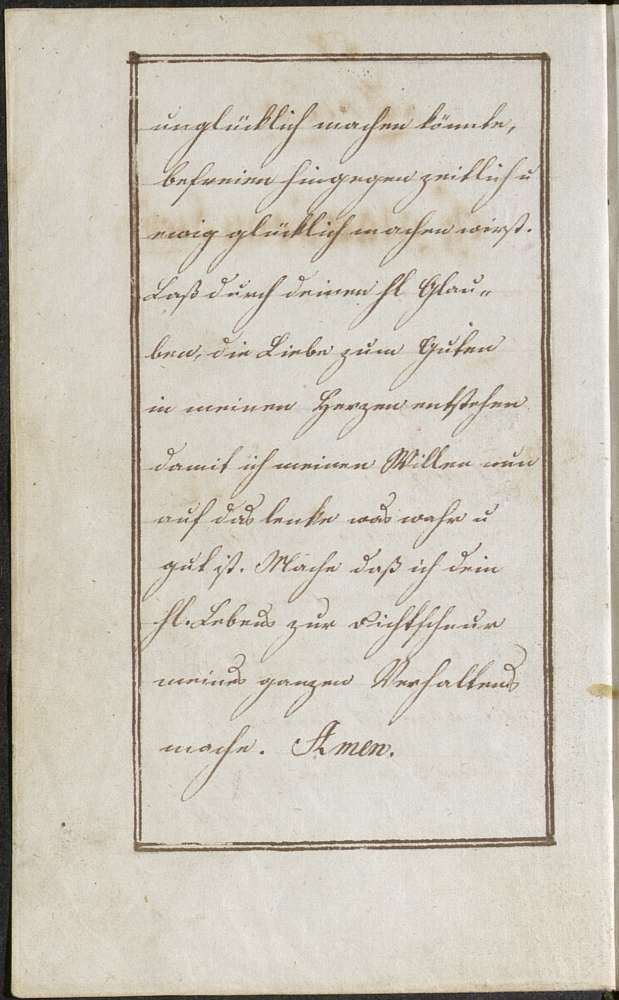 unglücklich machen könnte,
befreien hingegen zeitlich u
ewig glücklich machen wirst.
Laß durch deinen hl Glau„
ben, die Liebe zum Guten
in meinen Herzen entstehen
damit ich meinen Willen nun
auf das lenke was wahr u
gut ist. Mache daß ich dein
hl. Lebens zur Richtschnur
meines ganzen Verhaltens
mache. Amen.